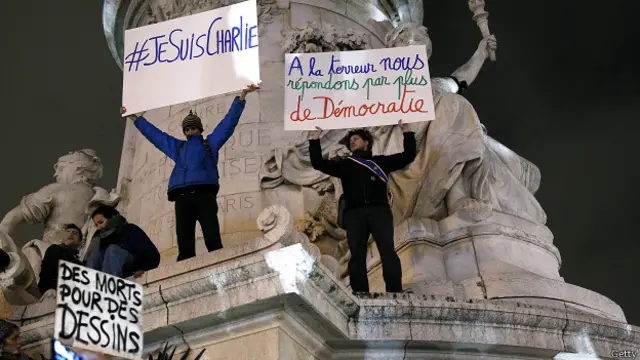 #JeSuisCharlie
A la terreur nous
répondons par plus
de Démocratie
DES MORTS
POUR DES
DESSINS
PARIS
Getty